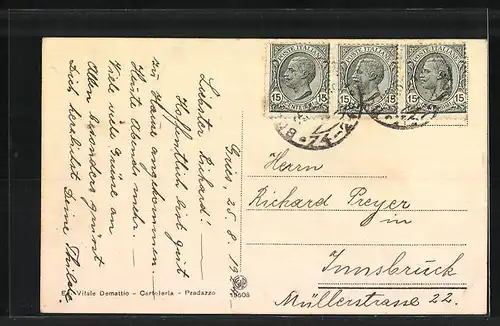 POSTE ITALIANE POSTE ITALIANE POSTE ITALIANE
15 CENTESIMI 15 15 15 15 15
Gries, 25. 8. 192
Liebster Richard! —
Hoffentlich bist gut
zu Hause angekommen. —
Heute Abends mehr. —
Viele viele Grüsse an
Allen besonders grüsst
Dich herzlichst Deine
Herrn
Richard Preyer
in
Innsbruck
Müllerstrasse 22.
Ed. Vitale Demattio - Cartoleria - Predazzo
19508